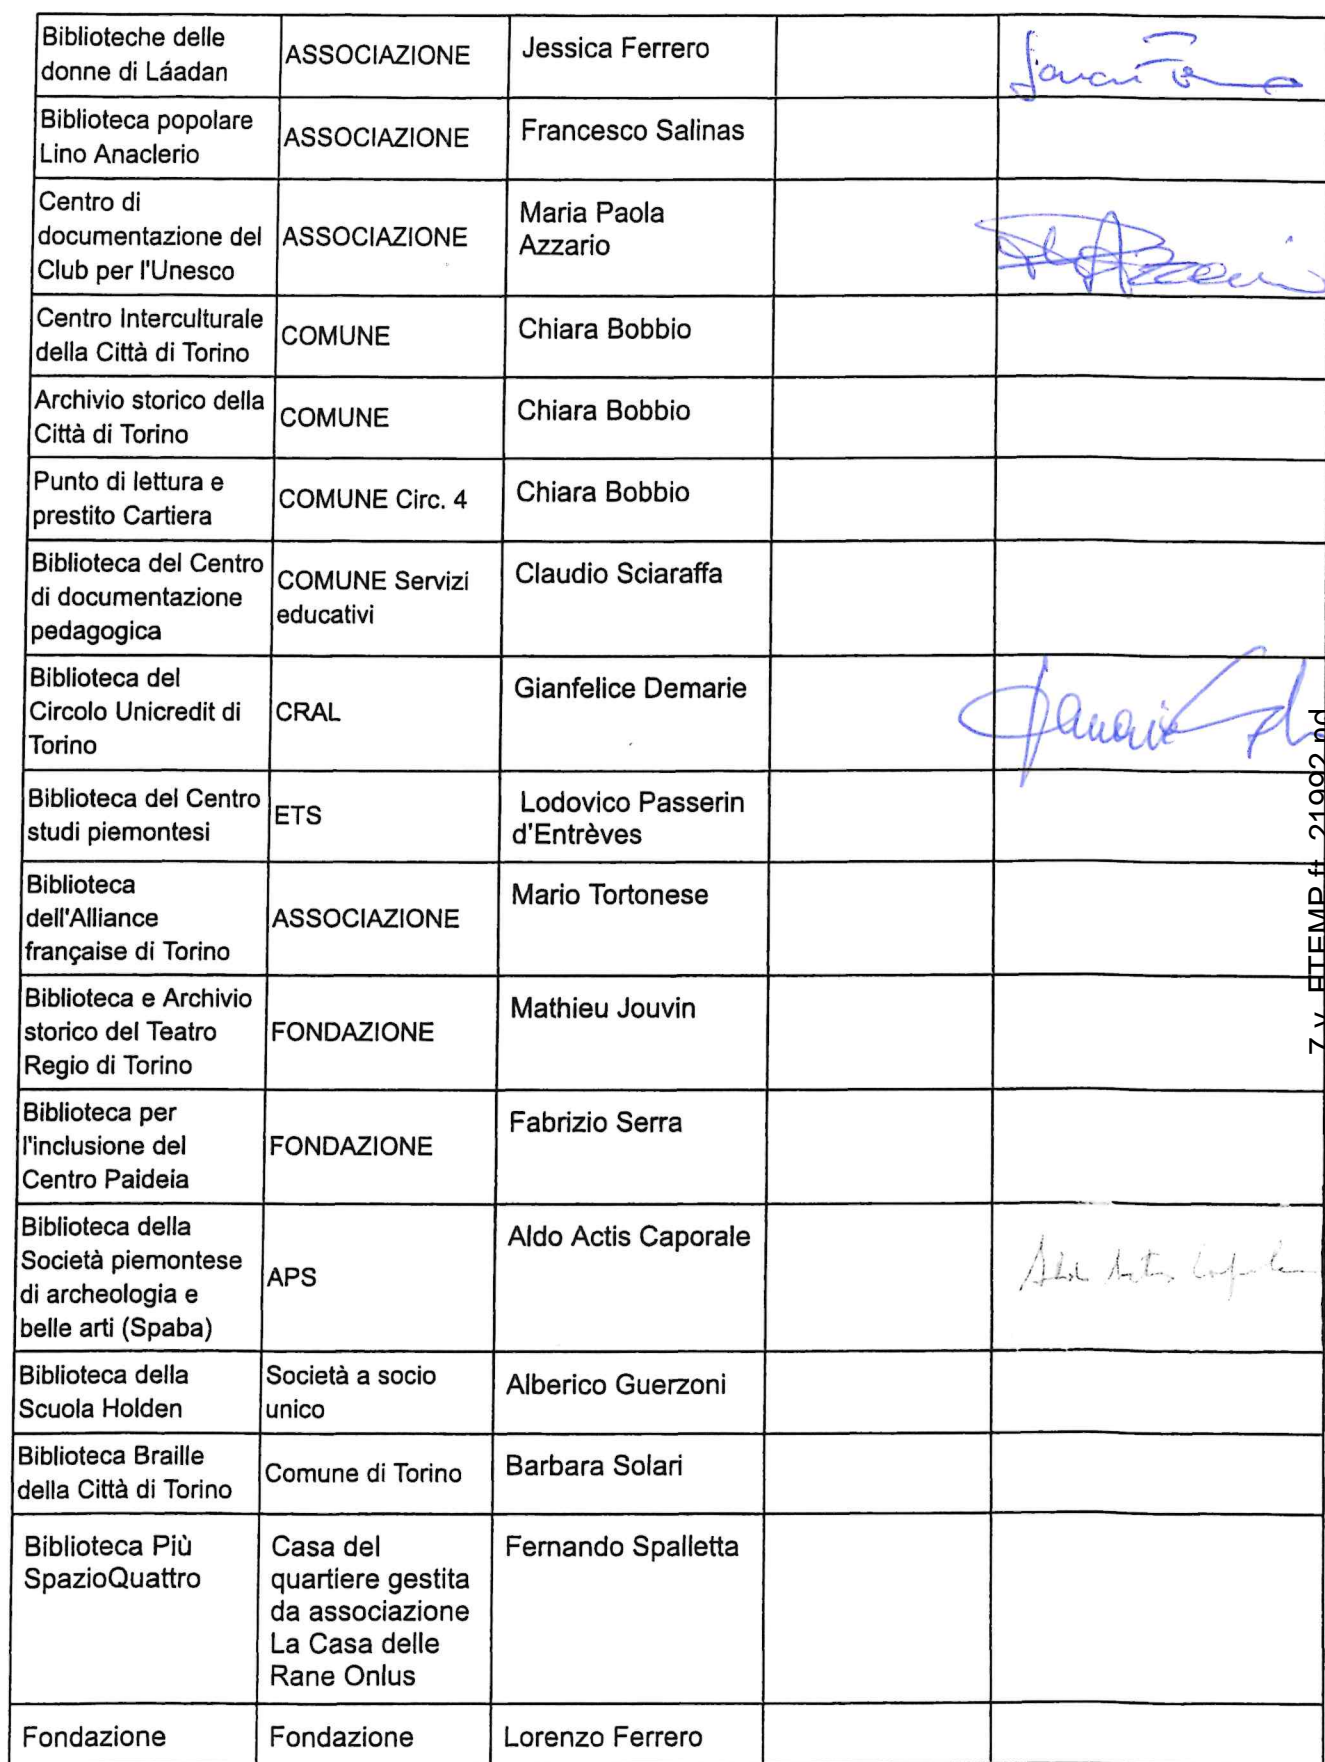 Biblioteche delle
donne di Láadan
ASSOCIAZIONE
Jessica Ferrero
Biblioteca popolare
Lino Anaclerio
ASSOCIAZIONE
Francesco Salinas
Centro di
documentazione del
Club per l'Unesco
ASSOCIAZIONE
Maria Paola
Azzario
Centro Interculturale
della Città di Torino
COMUNE
Chiara Bobbio
Archivio storico della
Città di Torino
COMUNE
Chiara Bobbio
Punto di lettura e
prestito Cartiera
COMUNE Circ. 4
Chiara Bobbio
Biblioteca del Centro
di documentazione
pedagogica
COMUNE Servizi
educativi
Claudio Sciaraffa
Biblioteca del
Circolo Unicredit di
Torino
CRAL
Gianfelice Demarie
Biblioteca del Centro
studi piemontesi
ETS
Lodovico Passerin
d'Entrèves
Biblioteca
dell'Alliance
française di Torino
ASSOCIAZIONE
Mario Tortonese
Biblioteca e Archivio
storico del Teatro
Regio di Torino
FONDAZIONE
Mathieu Jouvin
Biblioteca per
l'inclusione del
Centro Paideia
FONDAZIONE
Fabrizio Serra
Biblioteca della
Società piemontese
di archeologia e
belle arti (Spaba)
APS
Aldo Actis Caporale
Biblioteca della
Scuola Holden
Società a socio
unico
Alberico Guerzoni
Biblioteca Braille
della Città di Torino
Comune di Torino
Barbara Solari
Biblioteca Più
SpazioQuattro
Casa del
quartiere gestita
da associazione
La Casa delle
Rane Onlus
Fernando Spalletta
Fondazione
Fondazione
Lorenzo Ferrero